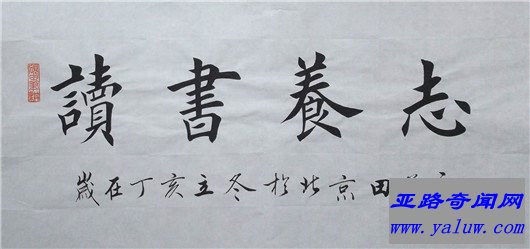 讀書養志
歲在丁亥立冬於北京田
亚路奇闻网
www.yaluw.com